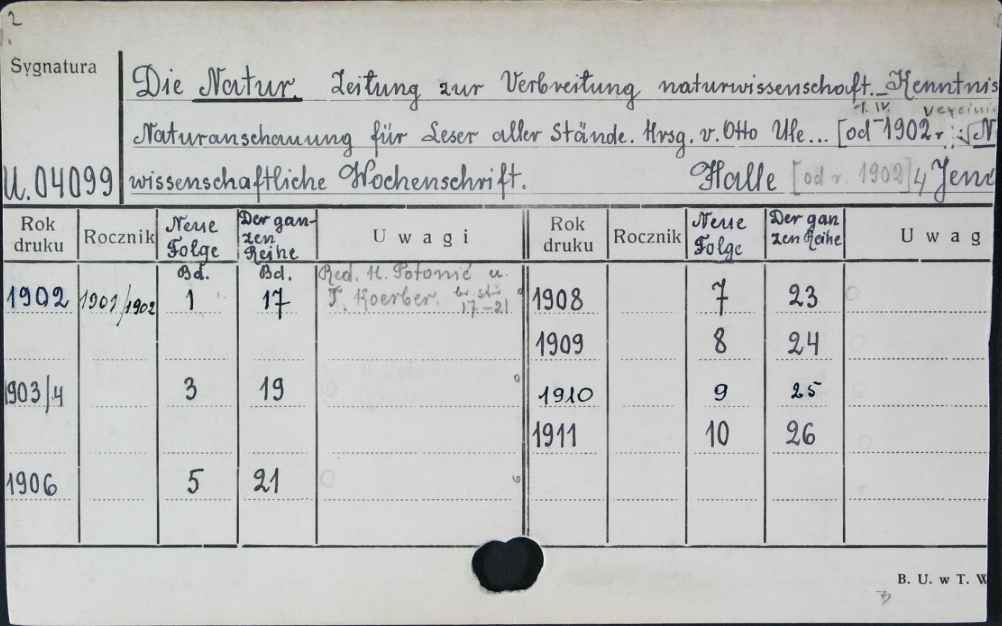 2
Sygnatura
Die Natur. Zeitung zur Verbreitung naturwissenschaft. Kenntnis
1. IV.
Naturanschauung für Leser aller Stände. Hrsg. v. Otto Ule... [od 1902 r.: N
U.04099
wissenschaftliche Wochenschrift. Halle [od r. 1902] Jena
Rok druku Rocznik Neue Folge Der ganzen Reihe Uwagi Rok druku Rocznik Neue Folge Der ganzen Reihe Uwag
Bd. Bd. Red. H. Potonié u.
1902 1901/1902 1 17 F. Koerber. 17-21 1908 7 23
1909 8 24
1903/4 3 19 1910 9 25
1911 10 26
1906 5 21
B. U. w T. W